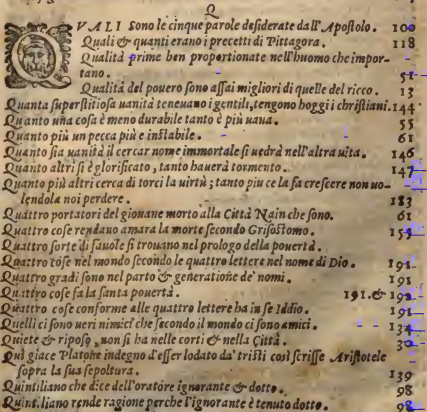 Q
QVALI sono le cinque parole desiderate dall'Apostolo. 100
Quali & quanti erano i precetti di Pittagora. 118
Qualità prime ben proportionate nell'huomo che impor-
tano. 51
Qualità del pouero sono assai migliori di quelle del ricco. 13
Quanta superstitiosa uanità teneuano i gentili, tengono hoggi i christiani. 144
Quanto una cosa è meno durabile tanto è più uana. 55
Quanto più un pecca più e instabile. 61
Quanto sia uanità il cercar nome immortale si uedrà nell'altra uita. 146
Quanto altri si è glorificato, tanto hauerà tormento. 147
Quanto più altri cerca di torci la uirtù; tanto piu ce la fa crescere non uo-
lendola noi perdere. 183
Quattro portatori del giouane morto alla Città Nain che sono. 61
Quattro cose rendano amara la morte secondo Grisostomo. 155
Quattro sorte di fauole si trouano nel prologo della pouertà.
Quattro cose nel mondo secondo le quattro lettere nel nome di Dio. 191
Quattro gradi sono nel parto & generatione de' nomi. 191
Quattro cose fa la santa pouertà. 191. & 192
Quattro cose conforme alle quattro lettere ha in se Iddio. 191
Quelli ci sono ueri nimici che secondo il mondo ci sono amici. 134
Quiete & riposo, non si ha nelle corti & nella Città. 30
Qui giace Platone indegno d'esser lodato da' tristi così scrisse Aristotele
sopra la sua sepoltura. 139
Quintiliano che dice dell'oratore ignorante & dotto. 98
Quint.liano rende ragione perche l'ignorante è tenuto dotto. 98